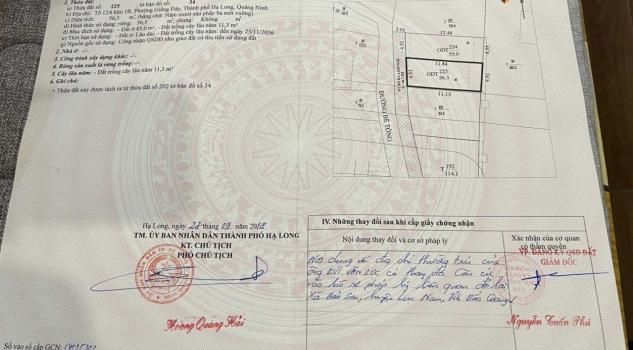 1. Thửa đất:
a) Thửa đất số: 225 tờ bản đồ số: 34
b) Địa chỉ: Tổ 12A khu 1B, Phường Giếng Đáy, Thành phố Hạ Long, Quảng Ninh
c) Diện tích: 56,3 m², (bằng chữ: Năm mươi sáu phẩy ba mét vuông)
d) Hình thức sử dụng: riêng: 56,3 m², chung: Không m²
đ) Mục đích sử dụng: - Đất ở 45,0 m²; - Đất trồng cây lâu năm 11,3 m²
e) Thời hạn sử dụng: - Đất ở: Lâu dài; - Đất trồng cây lâu năm: đến ngày 23/11/2056
g) Nguồn gốc sử dụng: Công nhận QSDĐ như giao đất có thu tiền sử dụng đất
2. Nhà ở: -/-
3. Công trình xây dựng khác: -/-
4. Rừng sản xuất là rừng trồng: -/-
5. Cây lâu năm: - Đất trồng cây lâu năm 11,3 m²
6. Ghi chú:
* Thửa đất này được tách ra từ thửa đất số 202 tờ bản đồ số 34
12.48
ODT 224
55.0
11.84
ODT 225
56.3
11.13
ĐƯỜNG BÊ TÔNG
T 192
114.1
Hạ Long, ngày
TM. ỦY BAN NHÂN DÂN THÀNH PHỐ HẠ LONG
KT. CHỦ TỊCH
PHÓ CHỦ TỊCH
Hoàng Quang Hải
Số vào sổ cấp GCN:
IV. Những thay đổi sau khi cấp giấy chứng nhận
Nội dung thay đổi và cơ sở pháp lý
Xác nhận của cơ quan
có thẩm quyền
VP. ĐĂNG KÝ QSD ĐẤT
GIÁM ĐỐC
Nội dung về địa chỉ thường trú của
ông có thay đổi. Căn cứ
hồ sơ pháp lý liên quan
xã Bảo Sơn, huyện Lục Nam, Tỉnh Bắc Giang
Nguyễn Tuấn Phú